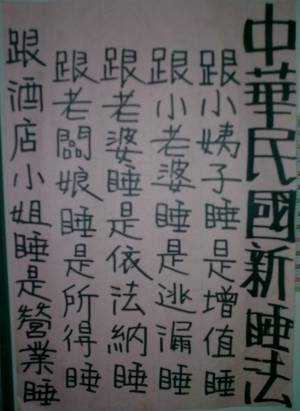 中華民國新睡法
跟小姨子睡是增值睡
跟小老婆睡是逃漏睡
跟老婆睡是依法納睡
跟老闆娘睡是所得睡
跟酒店小姐睡是營業睡